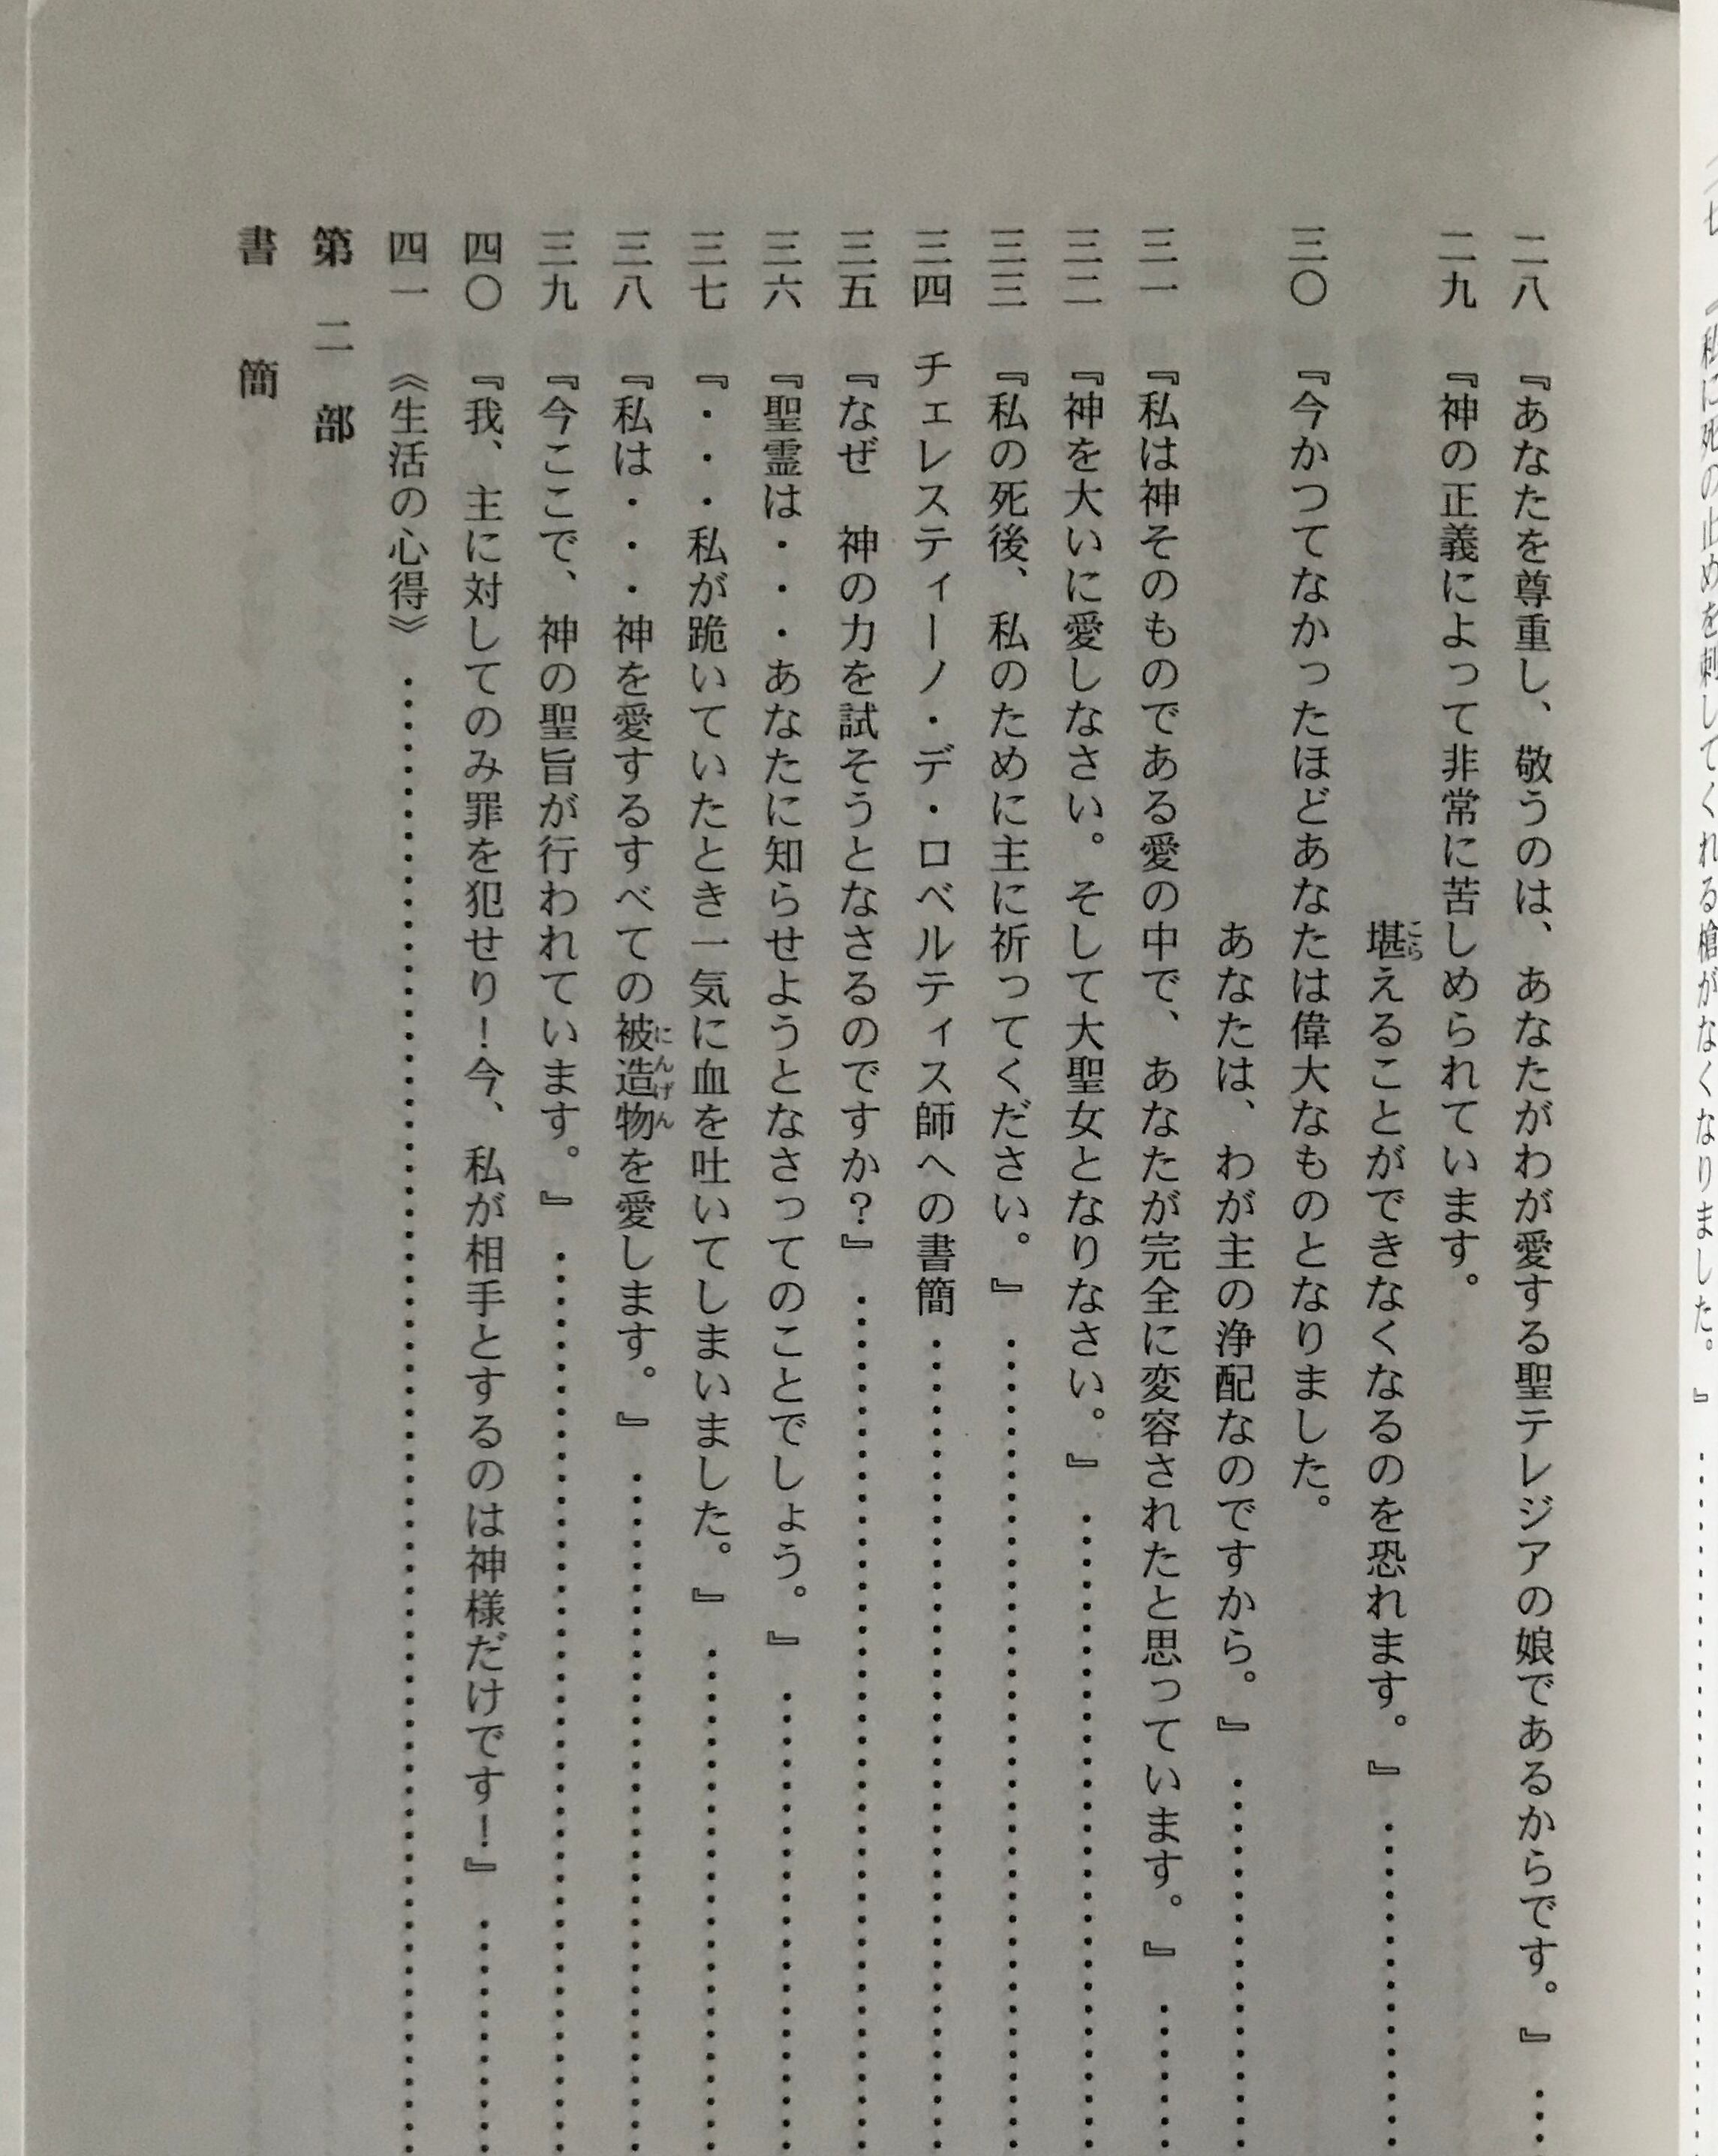 私に死の止めを刺してくれる槍がなくなりました。』
二八 『あなたを尊重し、敬うのは、あなたがわが愛する聖テレジアの娘であるからです。』
二九 『神の正義によって非常に苦しめられています。
堪えることができなくなるのを恐れます。』
こら
三〇 『今かつてなかったほどあなたは偉大なものとなりました。
あなたは、わが主の浄配なのですから。』
三一 『私は神そのものである愛の中で、あなたが完全に変容されたと思っています。』
三二 『神を大いに愛しなさい。そして大聖女となりなさい。』
三三 『私の死後、私のために主に祈ってください。』
三四 チェレスティーノ・デ・ロベルティス師への書簡
三五 『なぜ 神の力を試そうとなさるのですか?』
三六 『聖霊は・・・あなたに知らせようとなさってのことでしょう。』
三七 『・・・私が跪いていたとき一気に血を吐いてしまいました。』
三八 『私は・・・神を愛するすべての被造物を愛します。』
にんげん
三九 『今ここで、神の聖旨が行われています。』
四〇 『我、主に対してのみ罪を犯せり!今、私が相手とするのは神様だけです!』
四一 《生活の心得》
第二部
書簡